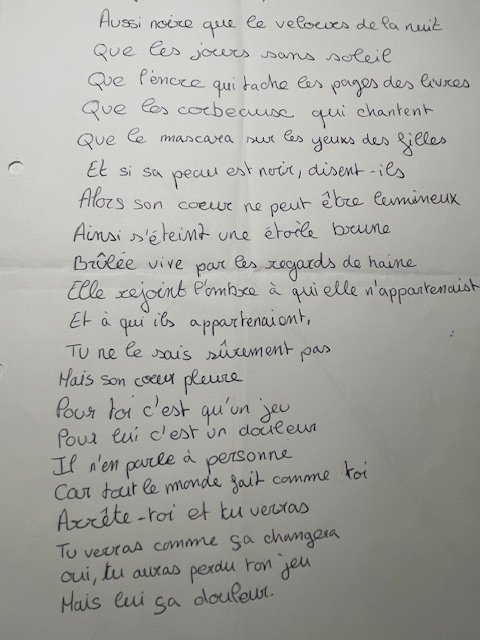 Aussi noire que le velours de la nuit
Que les jours sans soleil
Que l'encre qui tache les pages des livres
Que les corbeaux qui chantent
Que le mascara sur les yeux des filles
Et si sa peau est noir, disent-ils
Alors son coeur ne peut être lumineux
Ainsi s'éteint une étoile brune
Brûlée vive par les regards de haine
Elle rejoint l'ombre à qui elle n'appartenait
Et à qui ils appartenaient,
Tu ne le sais sûrement pas
Mais son coeur pleure
Pour toi c'est qu'un jeu
Pour lui c'est un douleur
Il n'en parle à personne
Car tout le monde fait comme toi
Arrête-toi et tu verras
Tu verras comme ça changera
oui, tu auras perdu ton jeu
Mais lui sa douleur.